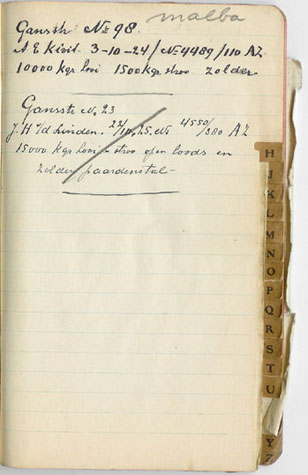 malba
Ganssh No 98.
A E Kivit 3-10-24/No 4489/110 AZ
10000 kgr hooi 1500 kgr stroo. zolder.
Ganssh No. 23
J. H v/d Linden. 22/10.25. No 4550/380 AZ
15000 kgr hooi - stroo open loods en
zolder paardenstal -
H
J
K
L
M
N
O
P
Q
R
S
T
U
Y
Z